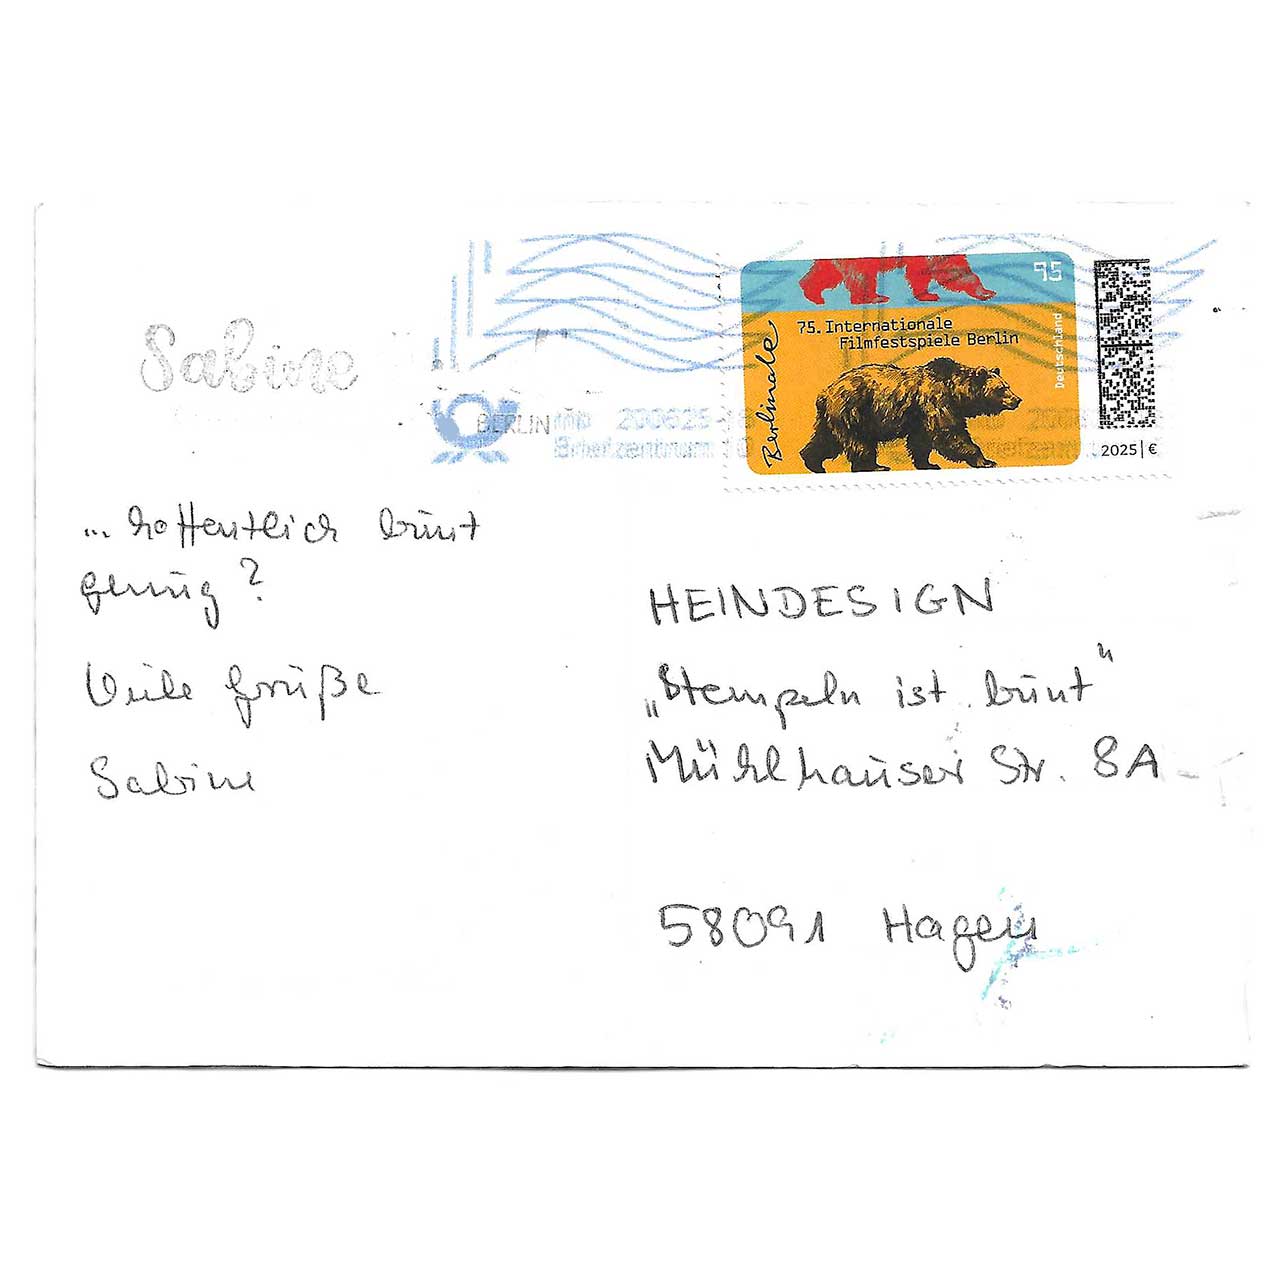 Sabine
BERLIN
200625-18
Briefzentrum 10
95
75. Internationale
Filmfestspiele Berlin
Berlinale
Deutschland
2025 | €
... hoffentlich bunt
genug?
Viele Grüße
Sabine
HEINDESIGN
„Stempeln ist bunt“
Mühlhauser Str. 8A
58091 Hagen